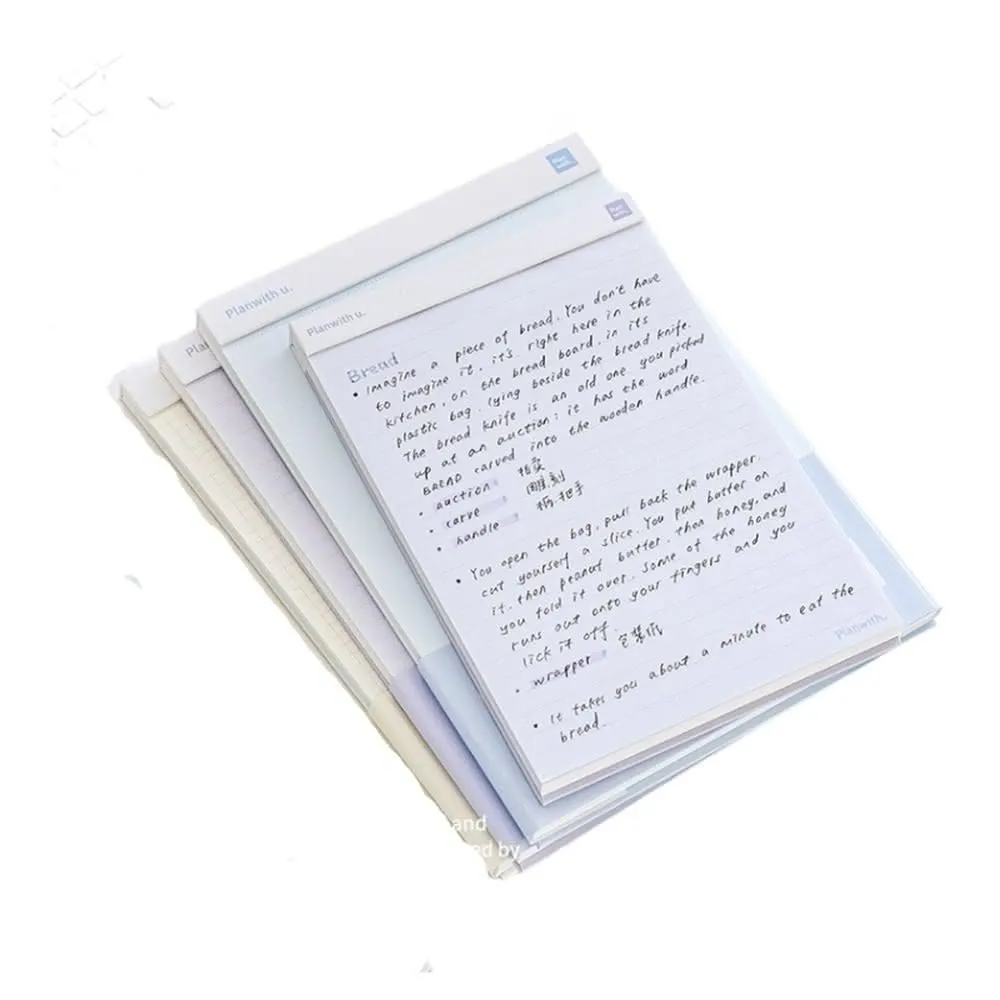 Plan with.
Planwith u.
Plan with.
Pla
Planwith u.
Bread
• Imagine a piece of bread. You don't have
to imagine it, it's right here in the
kitchen, on the bread board, in its
plastic bag, lying beside the bread knife.
The bread knife is an old one you picked
up at an auction; it has the word
BREAD carved into the wooden handle.
• auction 拍卖
• carve 雕刻
• handle 柄.把手
• You open the bag, pull back the wrapper,
cut yourself a slice. You put butter on
it, then peanut butter, then honey, and
you fold it over. Some of the honey
runs out onto your fingers and you
lick it off.
• wrapper 包装纸
• It takes you about a minute to eat the
bread.
Planwith.
and
ed by